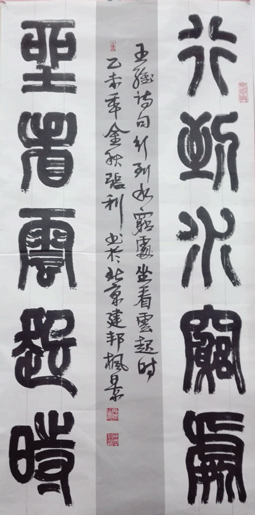 行到水窮處
坐看雲起時
王維詩句行到水窮處坐看雲起时
乙未年金秋張利书於北京建邦楓景